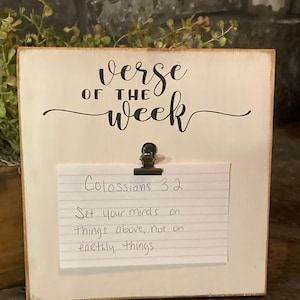 verse
OF THE
week
Colossians 3:2
Set your minds on
things above, not on
earthly things.